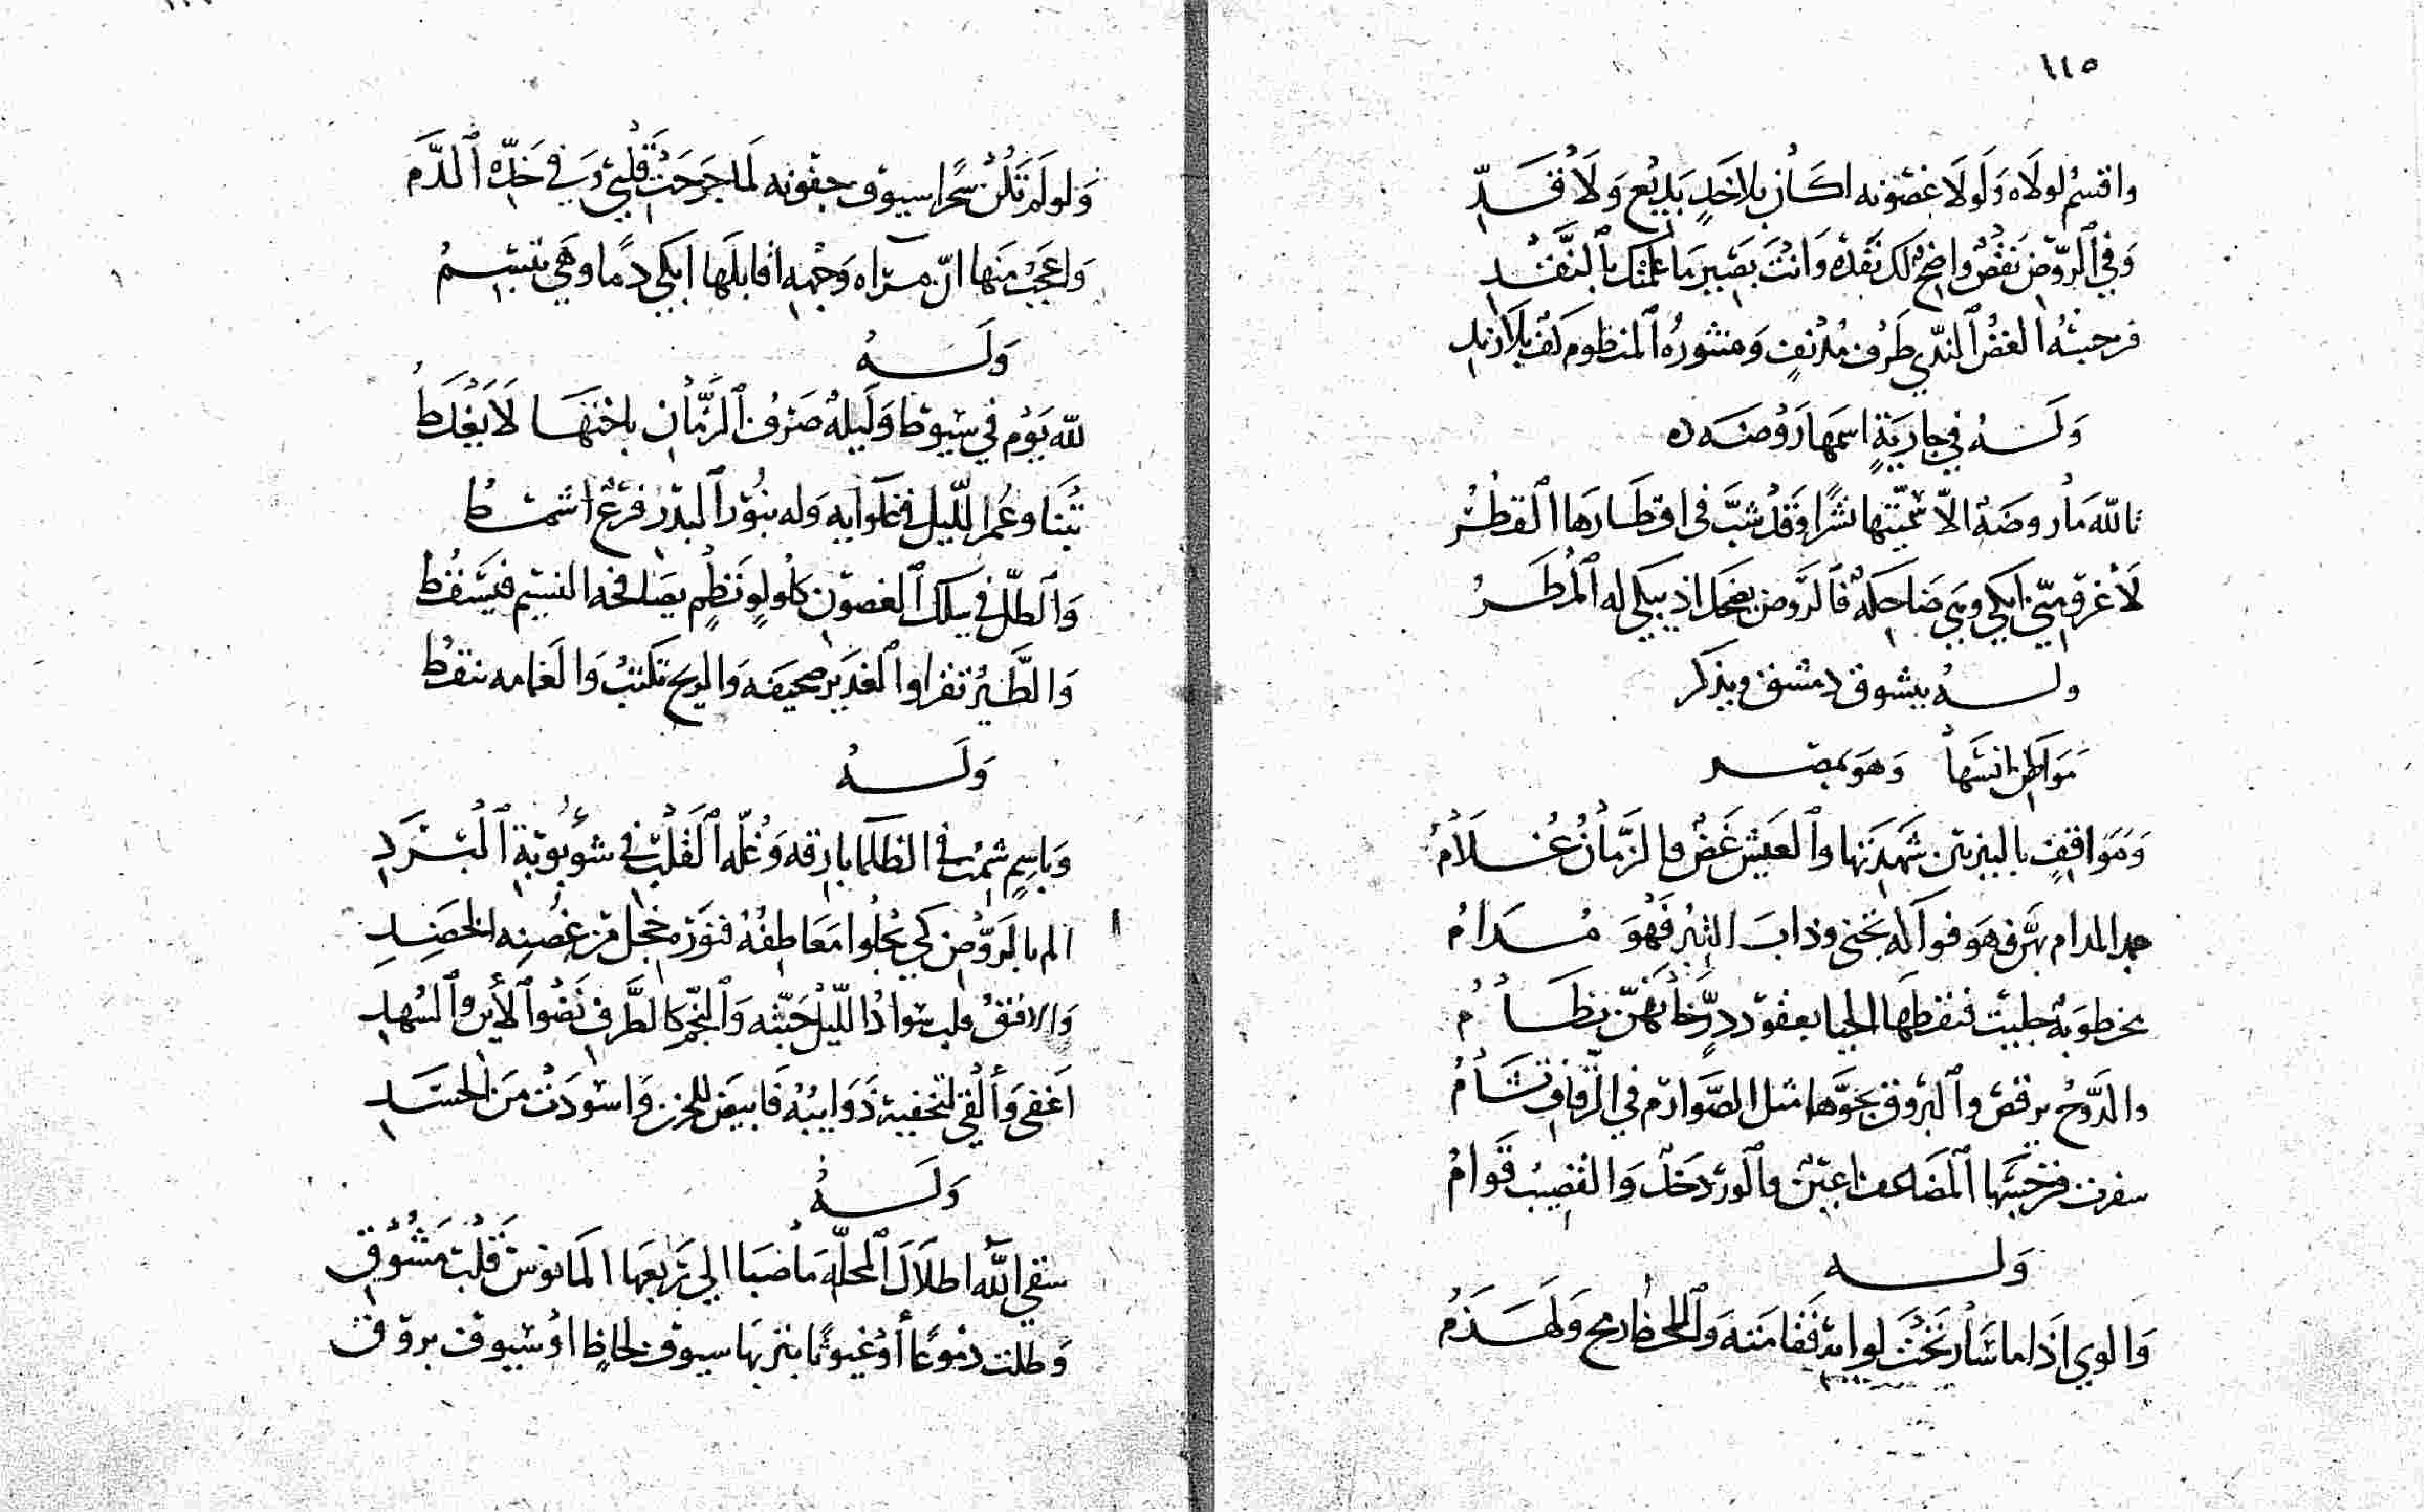 ١١٥
واقسمُ لولاه وَلَولَا غصونه لكان بلا خَدٍ بَديْع وَلَا قَدِّ
وَفي الروّض نَقْصٌ واضحٌ لك نَقدُه وَانتَ بَصير مَا علمتك بالنَّقْدِ
فنرجسُه الغضُ الندي طَرف مُدْنفٍ وَمنثورُه المنظوم كفٌ بلَا زند
وَلَهُ في جاريَةٍ اسمها رَوْضَه
تالله مَا روضَة الّا سميّتها نشرًا وَقَدْ شبَّ في اقطَارهَا القطْر
لَا غرو منّي ابكي وهي ضَاحكة فَالروّض يضحك اذ يبكي له المطَرُ
ولهُ يتشوق دمشق ويذكر
مَوَاطن انسَها وَهوَ بمصر
وَمَوَاقفٍ بالنيربين شهدتها والعَيش غَضٌ والزمَانُ غُلَامُ
جمد المدام بهن فهو فواكه تجنى وذابَ التبرُ فهْوَ مُدَامُ
مخطوبَة جليت فنقطهَا الحيا بعقود درٍّ مَا لهُنّ نظَامُ
والدَّوحُ يرقص والبروق بجوّها مثل الصَّوارم في الرقاق تشَامُ
سفرت فنرجسُها المضَاعف اعينٌ والورد خدٌ وَالقضيبُ قَوامُ
وَله
وَالوي اذَا ما سَار تحْتَ لوائه فقامته وَاللحظ رمح وَلهذَمُ
وَلولَم تَكُنْ سحرًا سيوف جفونه لَما جَرحَتْ قلبي وَفي خَدّه الدّم
وَاعجَبُ منها انّ مرآه وَجْهه اقابلَها ابكي دمًا وهَي تبسِمُ
وَلَهُ
لله يَوْم في سيوط وَليلة صَرفُ الزمَّان باختهَا لَا يَغْلَطُ
بْتنا وعُمر اللّيل في غلوايه وَله بنوْر البدر فرْعٌ اشمطُ
وَالطلّ في سلك الغصون كلُولوٍ نظْمٍ يصَافحه النسيم فيسْقُطُ
وَالطَّيرُ تقرا والغَدير صحيفه وَالريح تكتبُ وَالغمامه تنقطُ
وَلَهُ
وَباسمٍ شِمْت في الظلما بارقه وَغُلّة القَلْب في شؤبوبه البَرَدِ
الم بالرَوْض كَي يجلُوا مَعَاطفُهُ فنَوره خجل من غصنه الخضِدِ
وَالافقُ قلب سَوادُ اللّيل حَبّته وَالنجّم كالطَّرف نَضْو الأين والسُهدِ
اغفى وَألْقى لتخفيه ذَوَايبُهُ فَابيض للحزن وَاسوَدَتْ مَن الحسَدِ
وَلَهُ
سَقي الله اطلَالَ المحلّة مَا صَبَا الي رَبعها المَانوس قلْب مَشُوقِ
وَطلت دمُوعًا أوْ غيوثًا بتربهَا سيوف لحاظٍ اوْ سيوف بروق